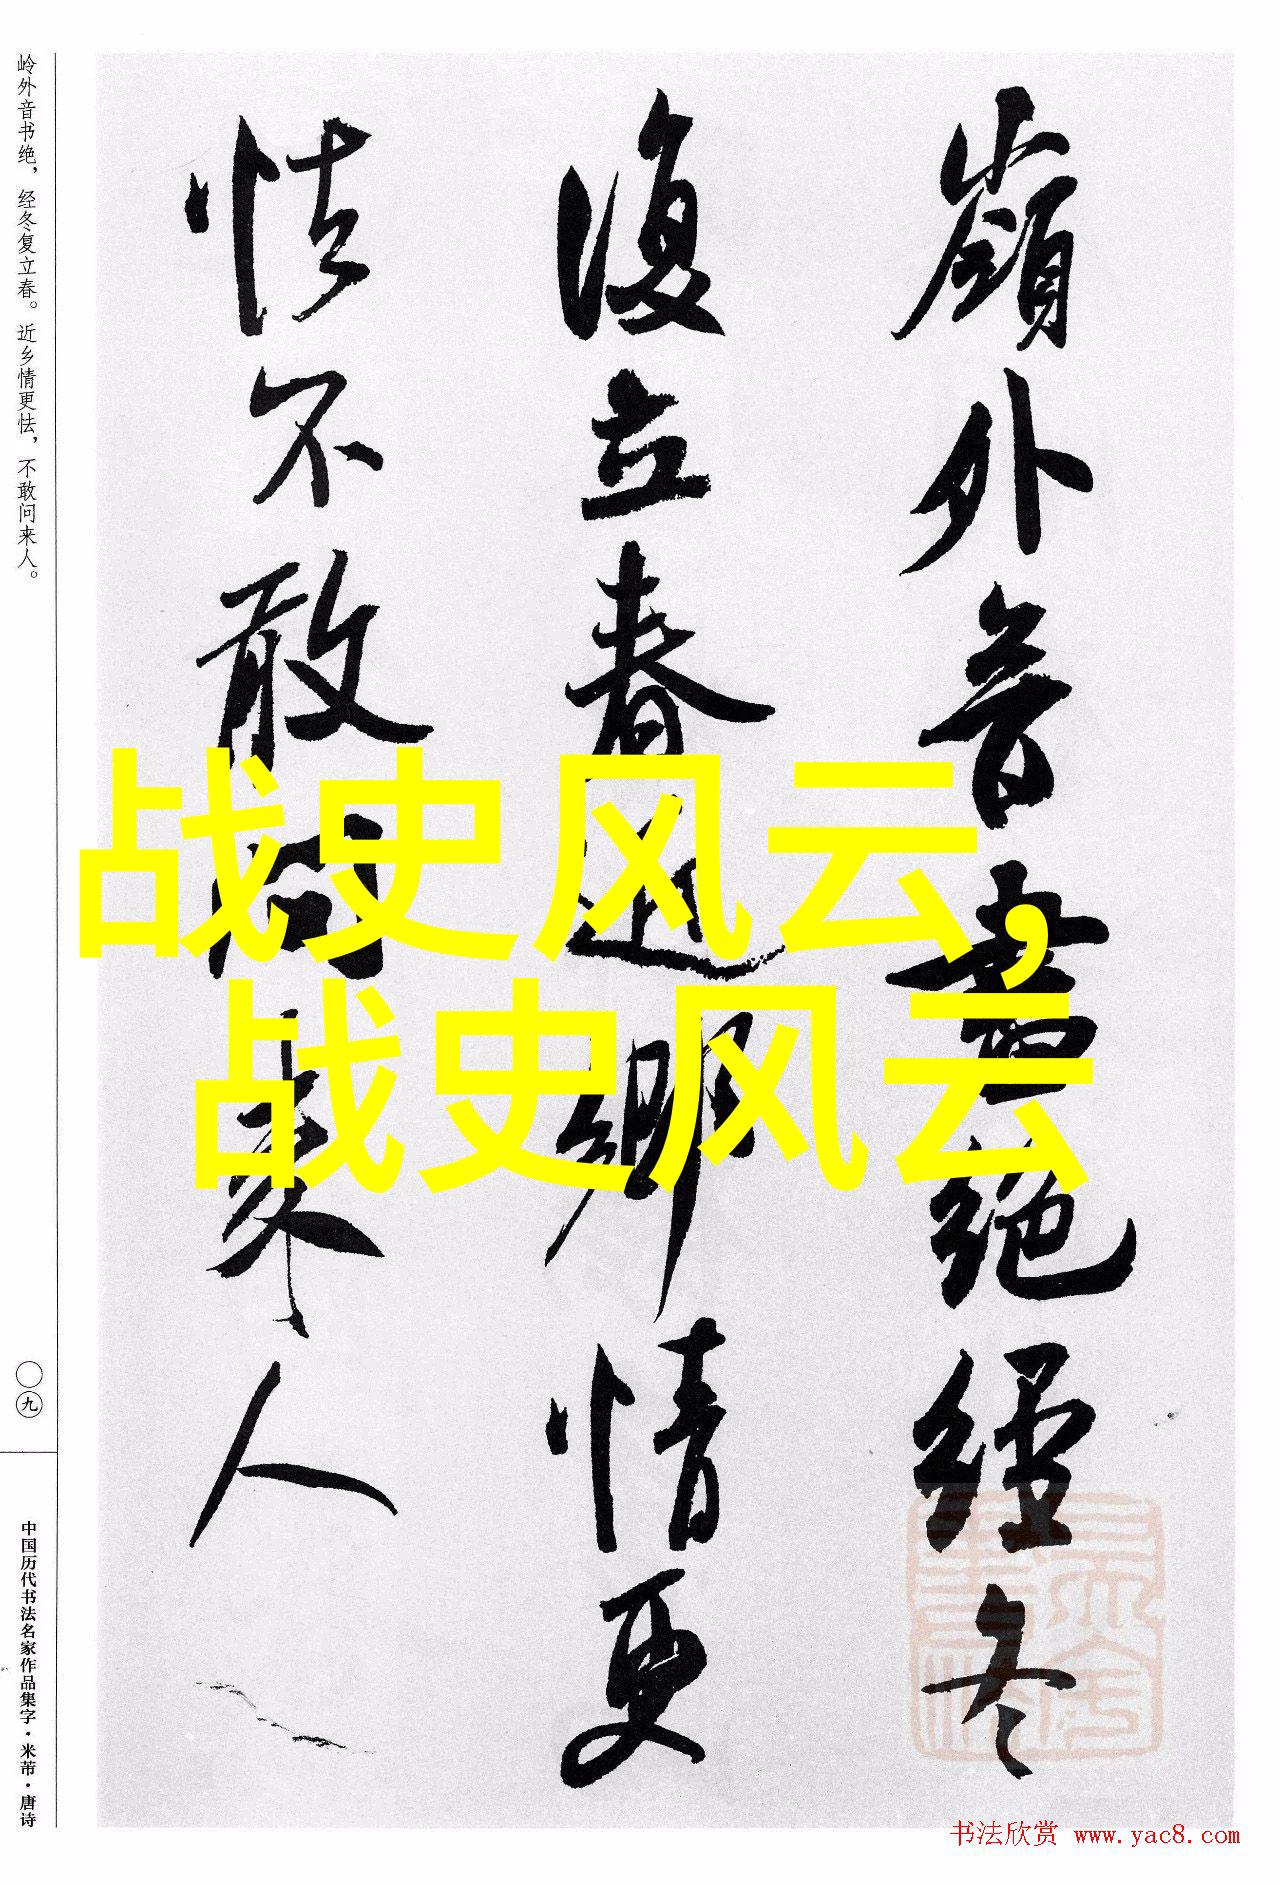 岭外音书绝，经冬复立春。近乡情更怯，不敢问来人。
嶺外音書絕經冬
復立春近鄉情更
怯不敢問來人
战史风云，
战史风云
〇九
中国历代书法名家作品集字·米芾·唐诗
书法欣赏 www.yac8.com